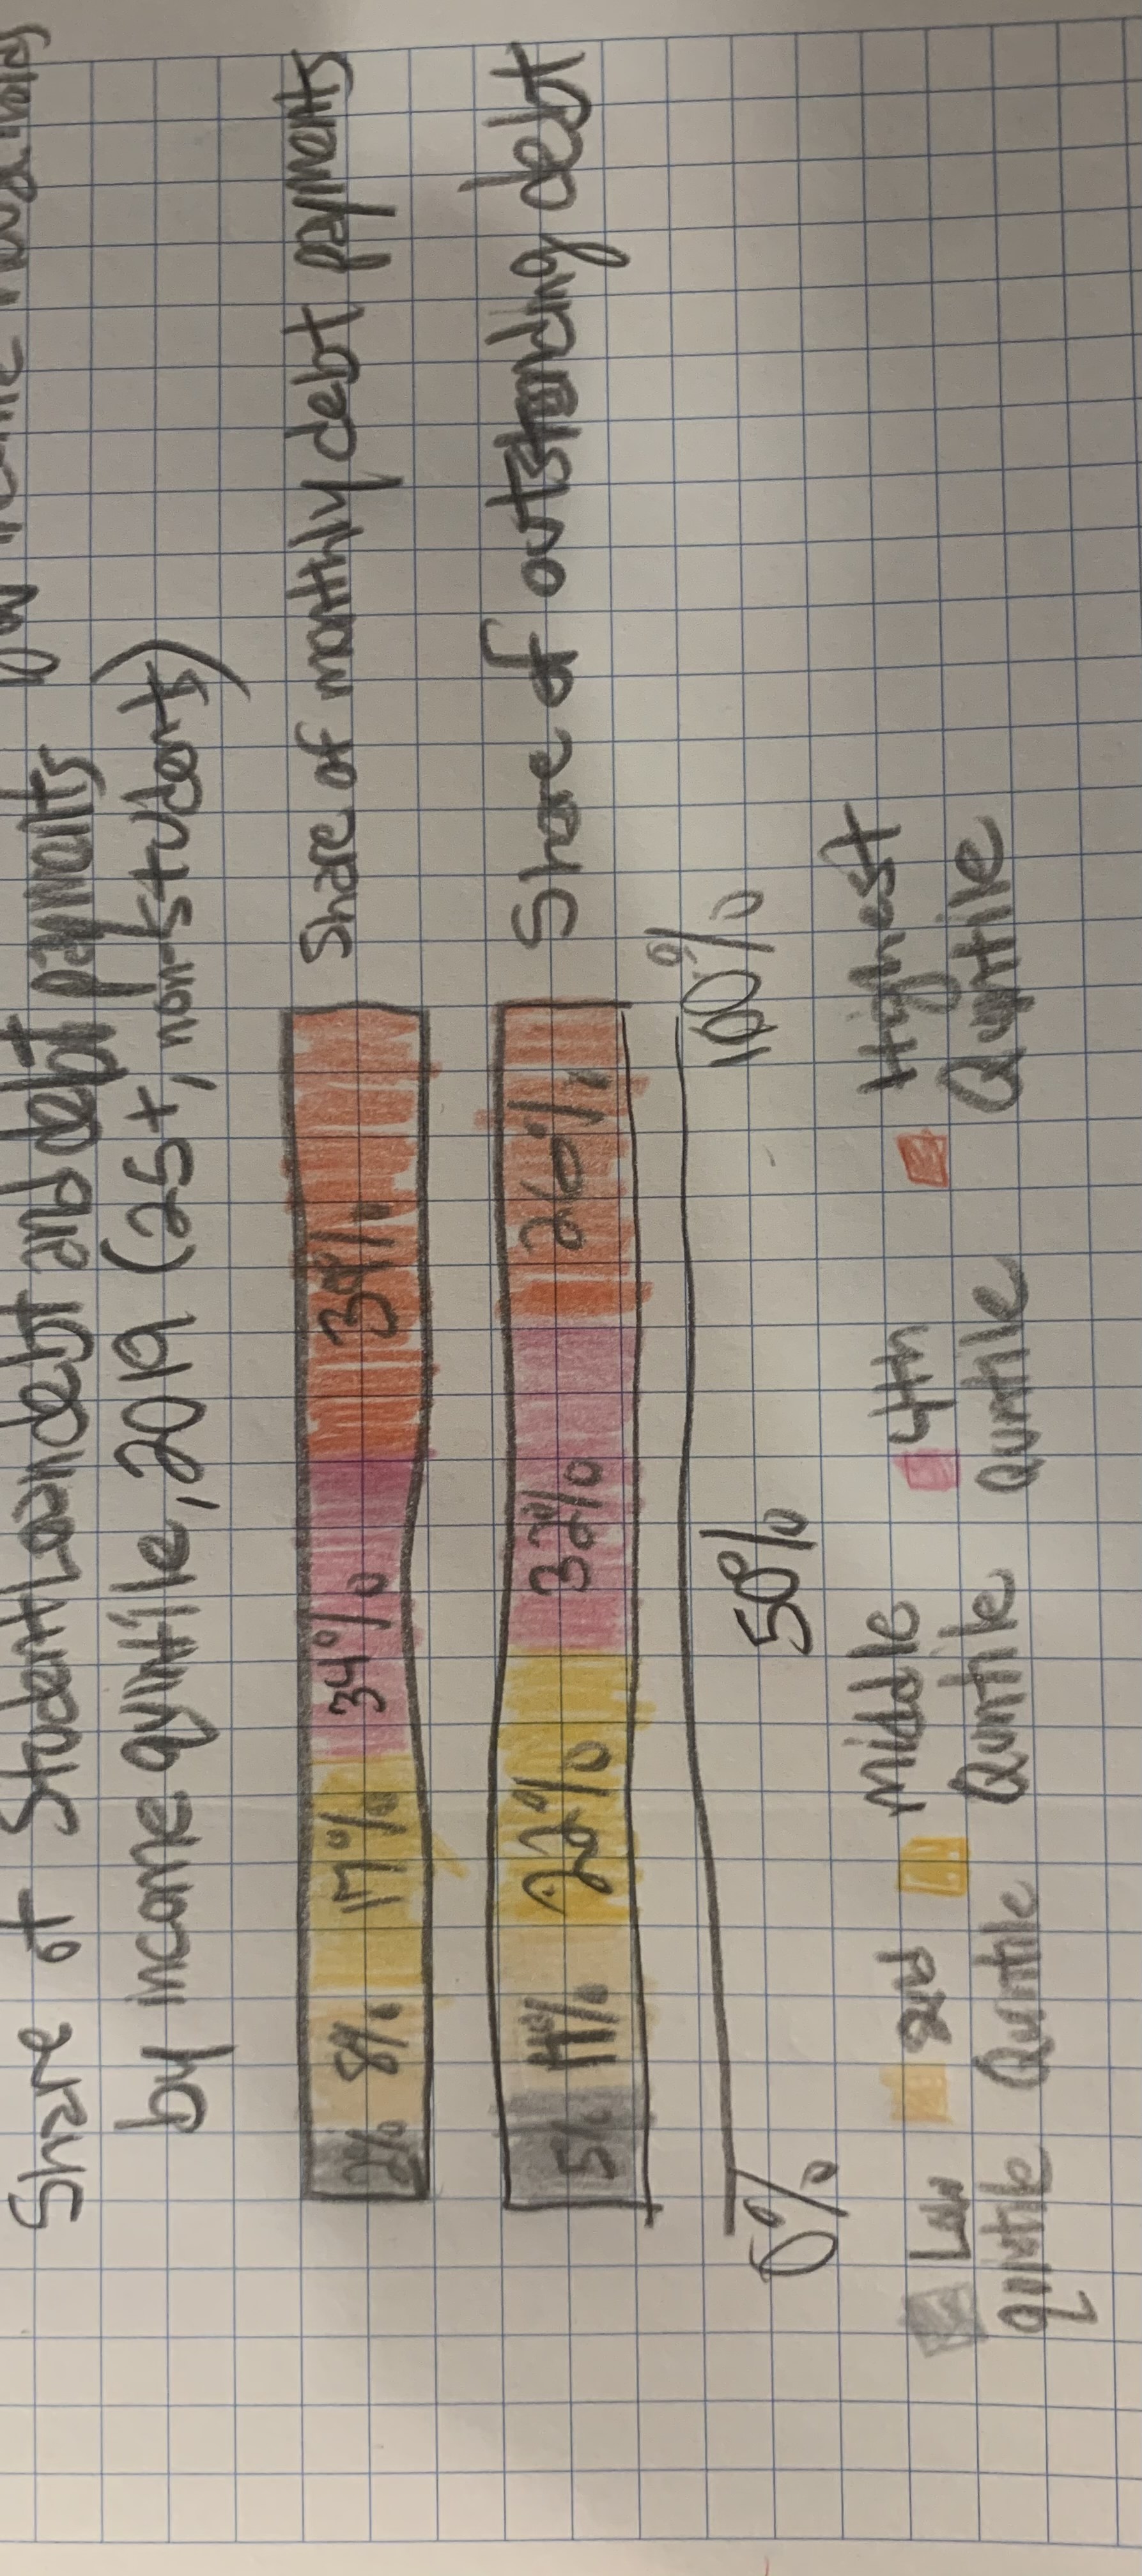 Share of Student Loan debt and debt payments
by income quintile, 2019 (25+, non-students)
2% 8% 17% 34% 39% Share of monthly debt payments
5% 11% 22% 32% 26% Share of outstanding debt
0% 50% 100%
Low 2nd Middle 4th Highest
quintile Quintile Quntile Quntile Quintile